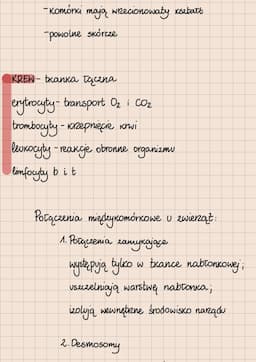 - komórki mają wrzecionowaty kształt
- powolne skurcze
KREW - tkanka łączna
erytrocyty - transport O₂ i CO₂
trombocyty - krzepnięcie krwi
leukocyty - reakcje obronne organizmu
limfocyty b i t
Połączenia międzykomórkowe u zwierząt:
1. Połączenia zamykające
występują tylko w tkance nabłonkowej;
uszczelniają warstwę nabłonka;
izolują wewnętrzne środowisko narządu
2. Desmosomy